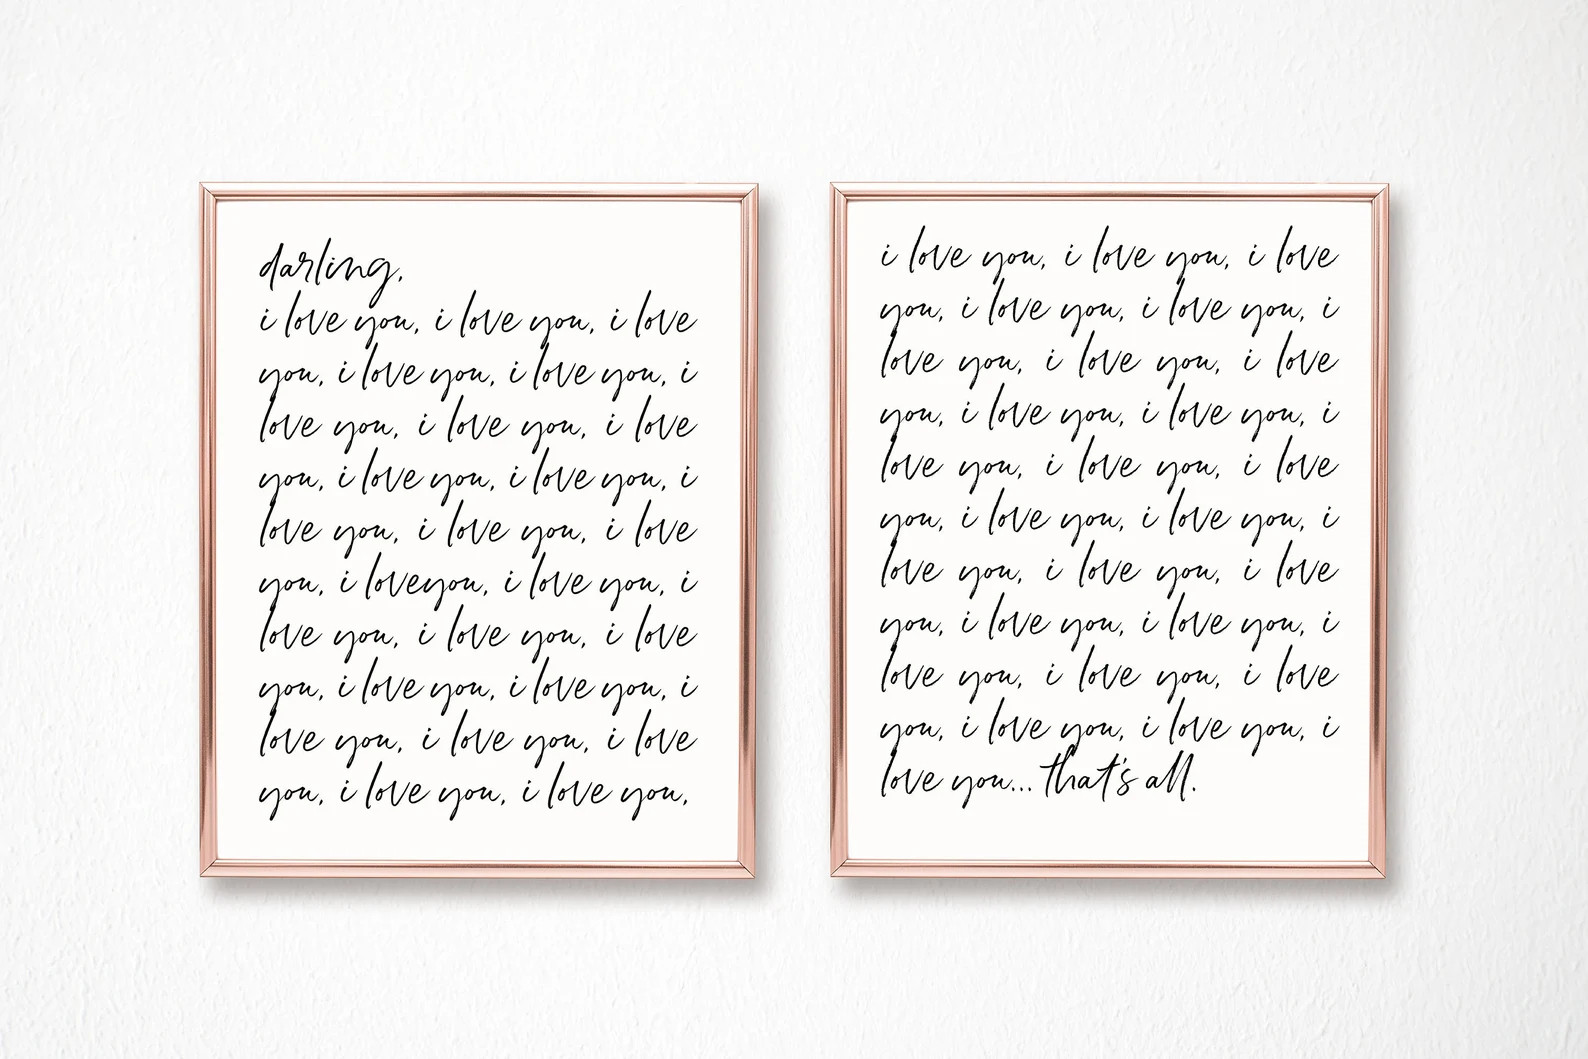 darling,
i love you, i love you, i love
you, i love you, i love you, i
love you, i love you, i love
you, i love you, i love you, i
love you, i love you, i love
you, i loveyou, i love you, i
love you, i love you, i love
you, i love you, i love you, i
love you, i love you, i love
you, i love you, i love you,
i love you, i love you, i love
you, i love you, i love you, i
love you, i love you, i love
you, i love you, i love you, i
love you, i love you, i love
you, i love you, i love you, i
love you, i love you, i love
you, i love you, i love you, i
love you, i love you, i love
you, i love you, i love you, i
love you... that's all.